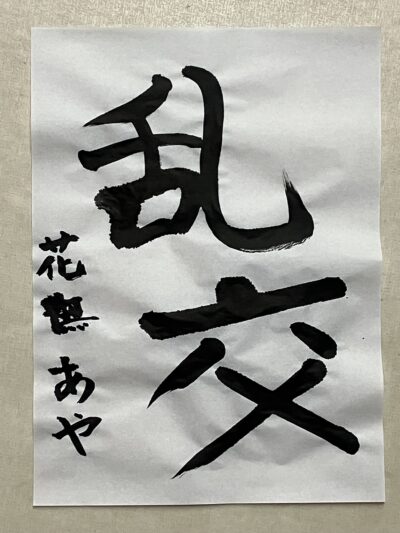 乱交
花撫あや